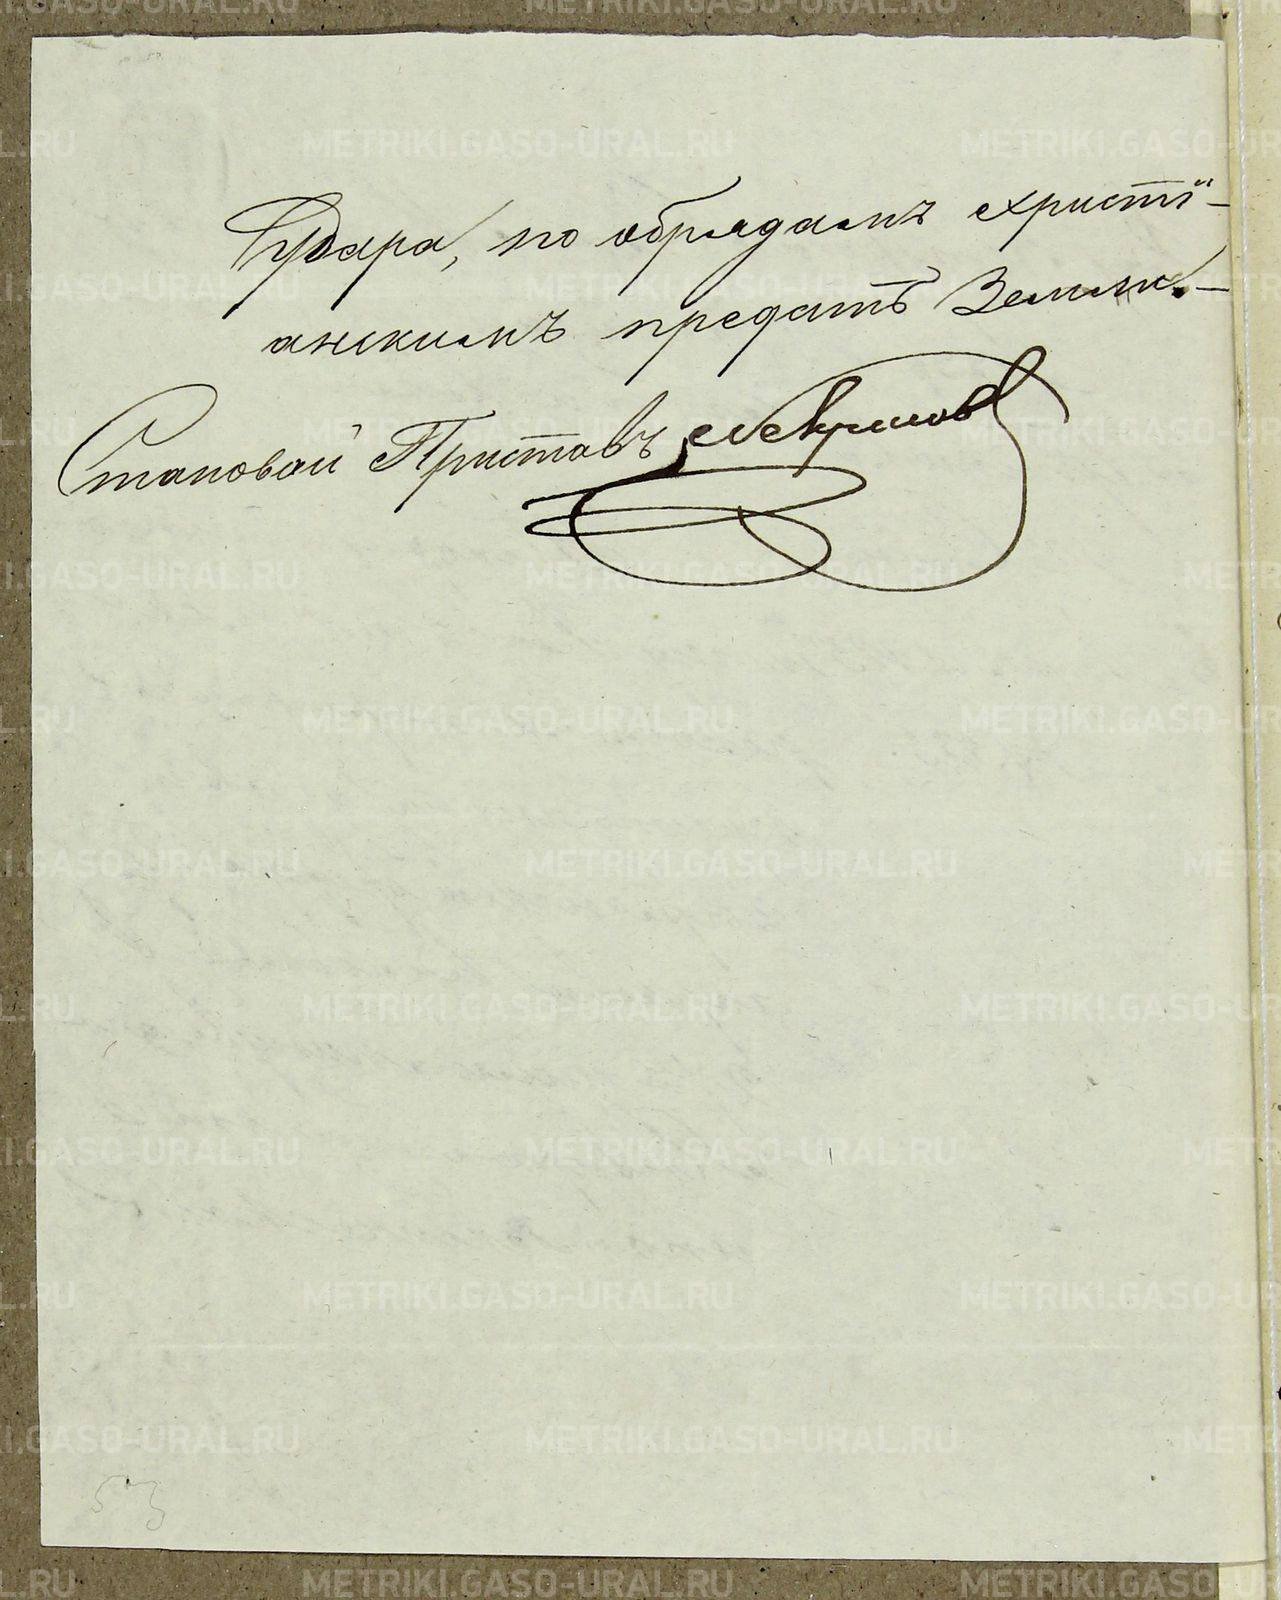 удара, по обрядамъ христі-
анскимъ предать земли.-
Становой Приставъ Некрасов
53
METRIKI.GASO-URAL.RU